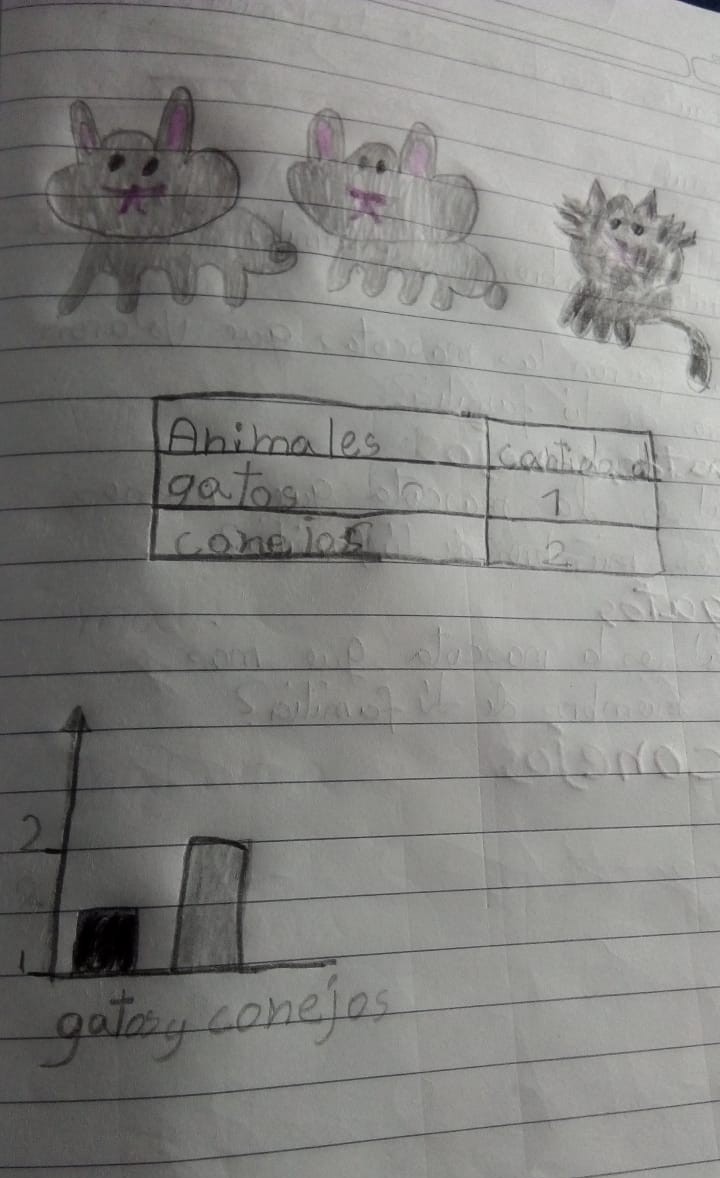 Animales cantidad
gatos 1
conejos 2
2
1
gatos y conejos